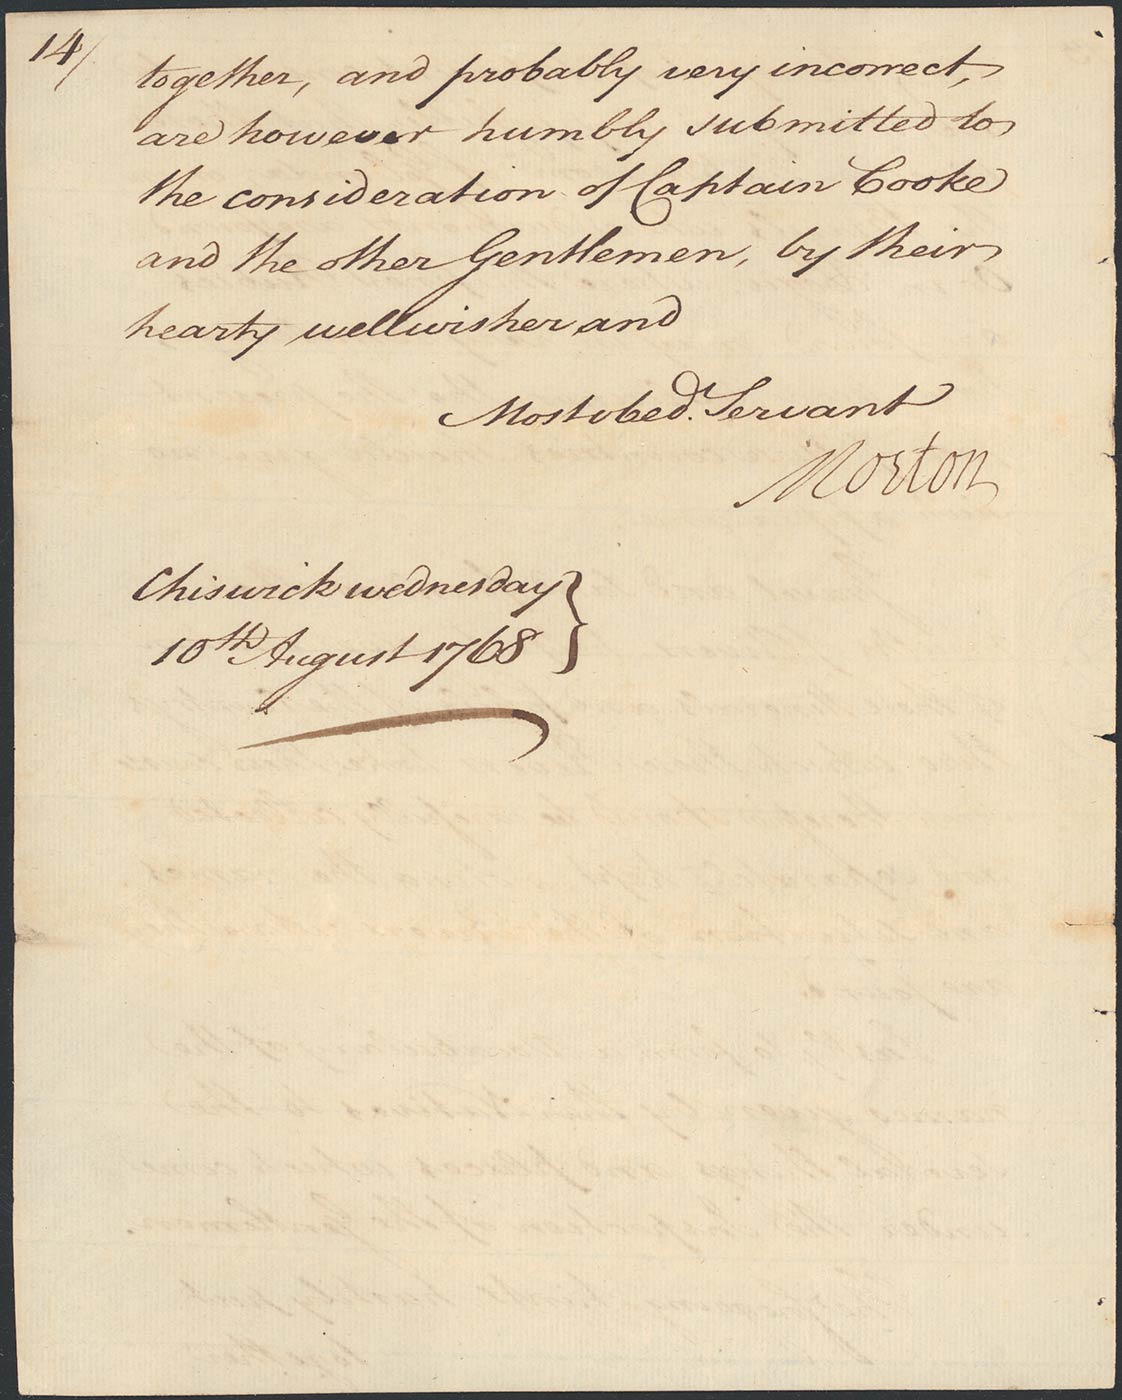 14/
together, and probably very incorrect,
are however humbly submitted to
the consideration of Captain Cooke
and the other Gentlemen, by their
hearty wellwisher and
Most obed. Servant
Morton
Chiswick wednesday
10th August 1768